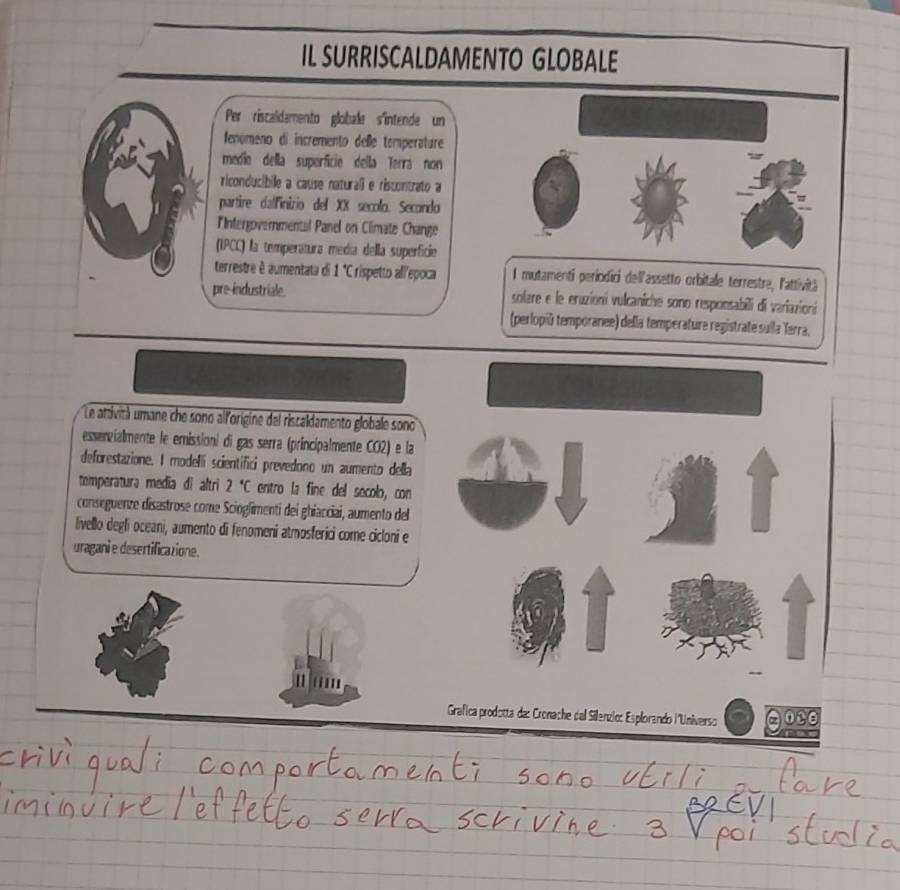 IL SURRISCALDAMENTO GLOBALE
Per riscaldamento globale s'intende un
fenomeno di incremento delle temperature
medie della superficie della Terra non
riconducibile a cause naturali e riscontrato a
partire dall'inizio del XX secolo. Secondo
l'Intergovernmental Panel on Climate Change
(IPCC) la temperatura media della superficie
terrestre è aumentata di 1 °C rispetto all'epoca
pre-industriale.
I mutamenti periodici dell'assetto orbitale terrestre, l'attività
solare e le eruzioni vulcaniche sono responsabili di variazioni
(perlopiù temporanee) della temperature registrate sulla Terra.
Le attività umane che sono all'origine del riscaldamento globale sono
essenzialmente le emissioni di gas serra (principalmente CO2) e la
deforestazione. I modelli scientifici prevedono un aumento della
temperatura media di altri 2 °C entro la fine del secolo, con
conseguenze disastrose come Scioglimenti dei ghiacciai, aumento del
livello degli oceani, aumento di fenomeni atmosferici come cicloni e
uragani e desertificazione.
Grafica prodotta da: Cronache dal Silenzio: Esplorando l'Universo
crivi quali comportamenti sono utili a fare
iminuire l'effetto serra scrivine 3 BREVI poi studia